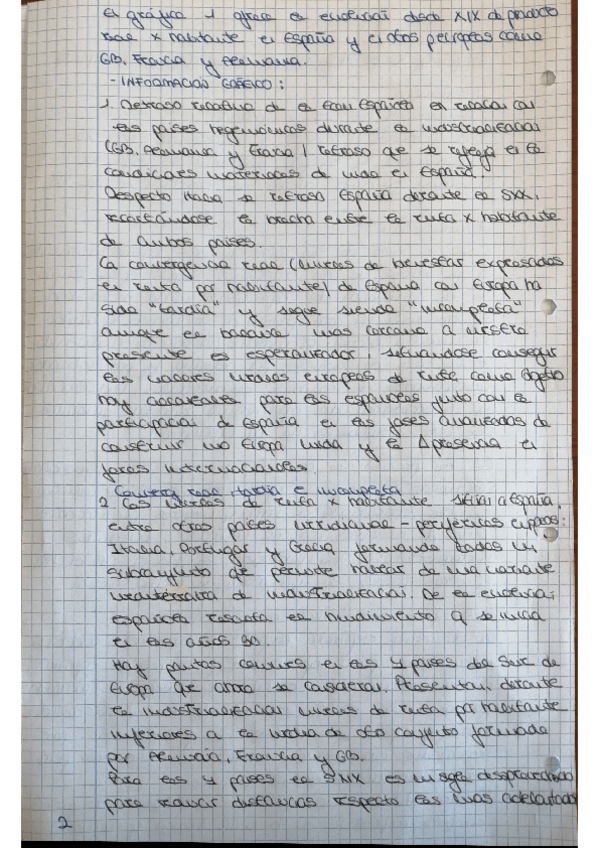 El gráfico 1 ofrece la evolución desde XIX de producto
real x habitante en España y en otros países europeos como
GB, Francia y Alemania.
- INFORMACIÓN GRÁFICO:
1. Retraso relativo de la Econ Española en relación con
los países hegemónicos durante la industrialización
(GB, Alemania y Francia) retraso que se refleja en la
condiciones materiales de vida en España.
Respecto Italia se retrasa España durante el SXX,
recortándose la brecha entre la renta x habitante
de ambos países.
La convergencia real (niveles de bienestar expresados
en renta por habitante) de España con Europa ha
sido "tardía" y sigue siendo "incompleta"
aunque el balance más cercano a nuestro
presente es esperanzador, situándose conseguir
los valores medios europeos de renta como objetivo
hoy alcanzable para los españoles junto con la
participación de España en las fases avanzadas de
construir una Europa unida y la Δ presencia en
foros internacionales.
Converg real tardía e incompleta
2 Los niveles de renta x habitante sitúan a España,
entre otros países meridionales - periféricos europeos:
Italia, Portugal y Grecia formando todos un
subconjunto que permite hablar de una variante
mediterránea de industrialización. De la evolución
española resalta el hundimiento q se inicia
en los años 30.
Hay puntos comunes en los 4 países del Sur de
Europa que ahora se consideran. Presentan, durante
la industrialización niveles de renta por habitante
inferiores a la media de otro conjunto formado
por Alemania, Francia y GB.
Para los 4 países el SXIX es un siglo desaprovechado
para recortar distancias respecto los más adelantados
2